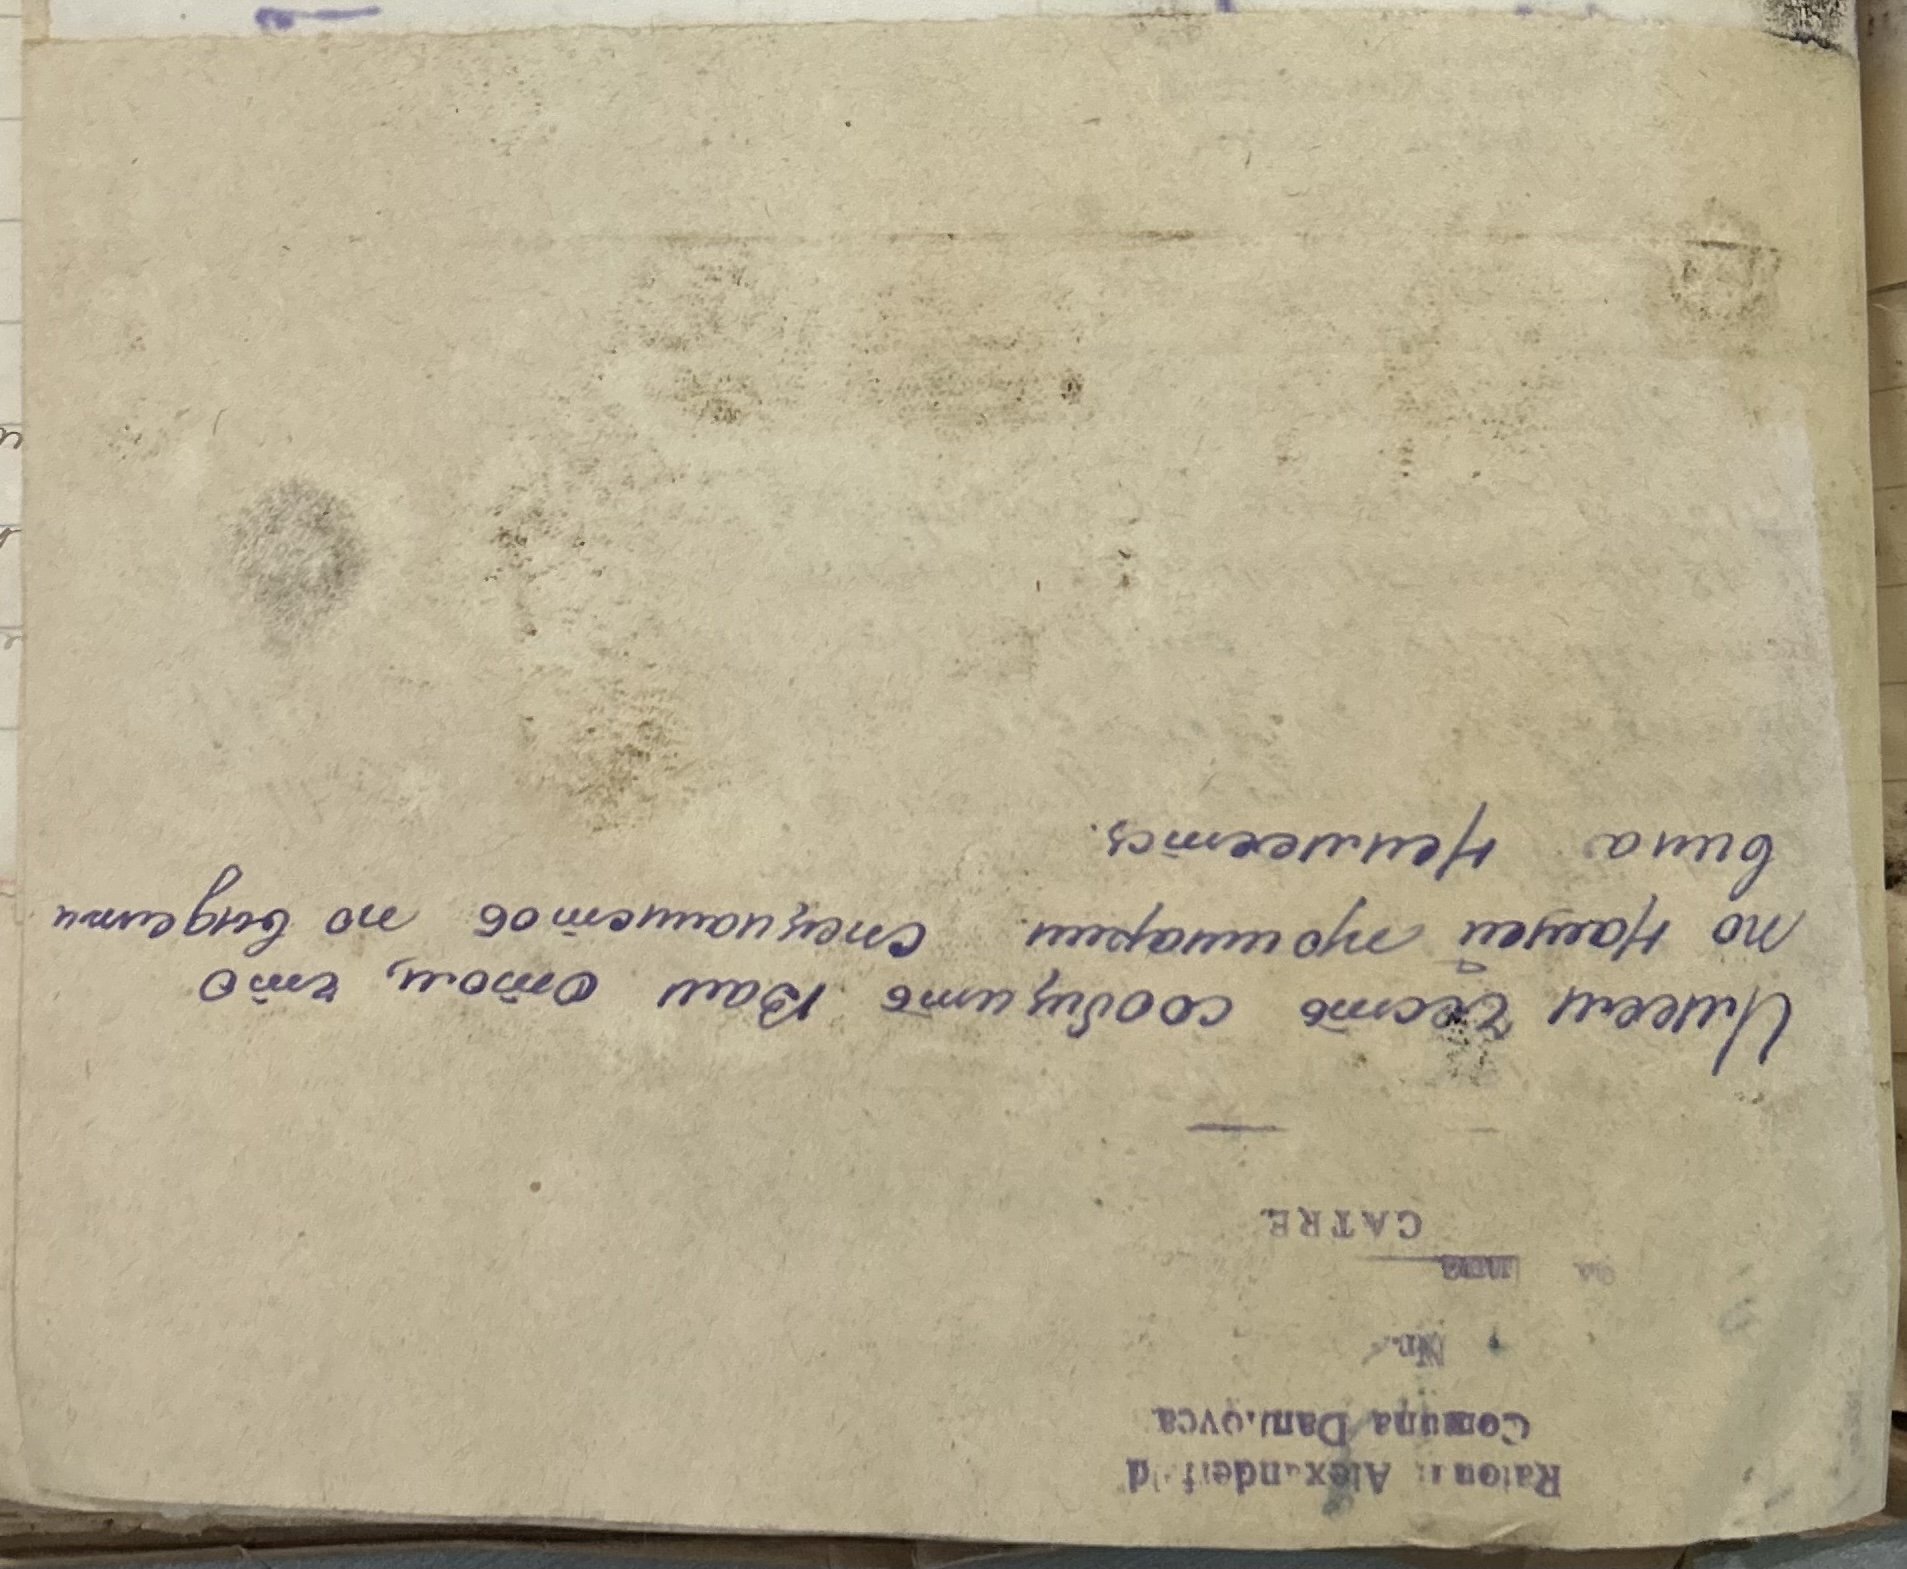 Raionul Alexanderfeld
Comuna Danilovca
Nr.
CATRE
Имеем честь сообщить Вам отом, что
по нашей примарии специалистов по видению
вина неимеется.